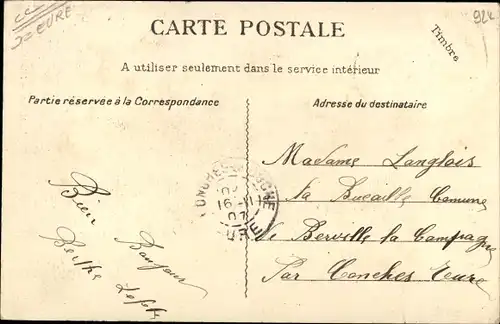 CARTE POSTALE
A utiliser seulement dans le service intérieur
Timbre
Partie réservée à la Correspondance
Adresse du destinataire
Bien
Bonjour
Berthe
Madame Langlois
la Bucaille Comune
de Berville la Campagne
Par Conches Eure
16-11
07
EURE